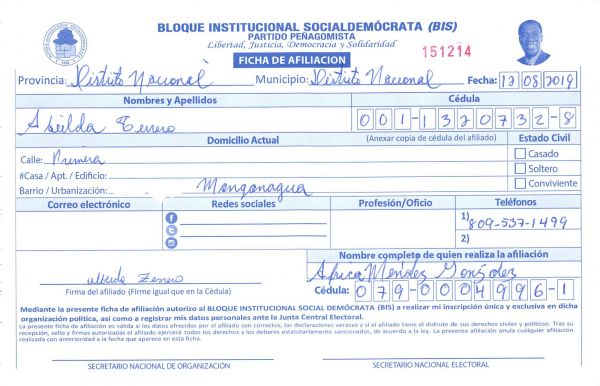 BLOQUE INSTITUCIONAL SOCIALDEMÓCRATA (BIS)
PARTIDO PEÑAGOMISTA
Libertad, Justicia, Democracia y Solidaridad
FICHA DE AFILIACION
151214
Provincia: Distrito Nacional Municipio: Distrito Nacional Fecha: 12/08/2019
Nombres y Apellidos Cédula
Abeilda Terrero 001-1320732-8
Domicilio Actual (Anexar copia de cédula del afiliado) Estado Civil
Calle: Primera Casado
#Casa / Apt. / Edificio: Soltero
Barrio / Urbanización: Manganagua Conviviente
Correo electrónico Redes sociales Profesión/Oficio Teléfonos
1) 809-537-1499
2)
Nombre completo de quien realiza la afiliación
Africa Mendez González
Firma del afiliado (Firme igual que en la Cédula) Cédula: 079-0004996-1
Mediante la presente ficha de afiliación autorizo al BLOQUE INSTITUCIONAL SOCIAL DEMÓCRATA (BIS) a realizar mi inscripción única y exclusiva en dicha
organización política, así como a registrar mis datos personales ante la Junta Central Electoral.
La presente ficha de afiliación es válida si los datos ofrecidos por el afiliado son correctos, las declaraciones veraces y si el afiliado tiene el disfrute de sus derechos civiles y políticos. Tras su
recepción, sello y firmas autorizadas el afiliado ejercerá todos los derechos y los deberes estatutariamente sancionados, de acuerdo a la ley. La presente afiliación anula cualquier afiliación
realizada con anterioridad a la fecha que aparece en esta ficha.
SECRETARIO NACIONAL DE ORGANIZACIÓN SECRETARIO NACIONAL ELECTORAL